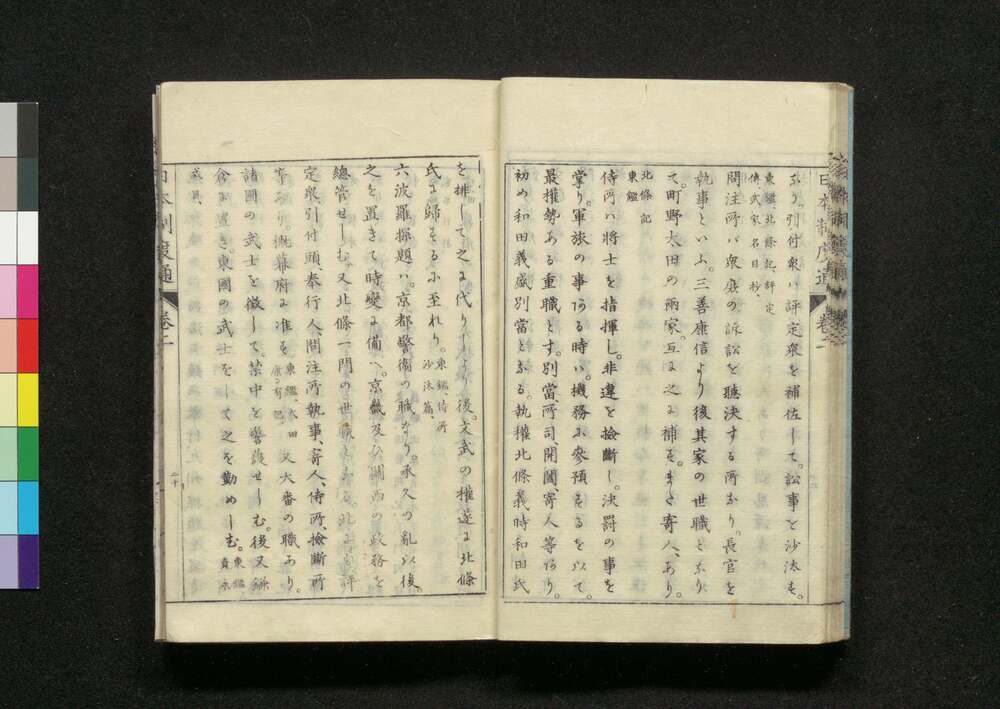 なり。引付衆ハ評定衆を補佐して。訟事を沙汰す。
東鑑北條記、評定
傳、武家名目抄、
問注所ハ衆庶の訴訟を聽決する所なり。長官を
執事といふ。三善康信より後其家の世職となり
て。町野太田の兩家。互に之に補す。また寄人、あり。
北條記
東鑑
侍所ハ將士を指揮し。非違を撿斷し。決罰の事を
掌り。軍旅の事ある時ハ。機務に參預するを以て。
最權勢ある重職とす。別當、所司、開闔、寄人等あり。
初め和田義盛別當となる。執權北條義時和田氏
を排して之に代りしより後。文武の權遂に北條
氏に歸するに至れり。
東鑑、侍所
沙汰篇、
六波羅探題ハ。京都警衞の職なり。承久の亂以後。
之を置きて時變に備へ。京畿及び關西の政務を
總管せしむ。又北條一門の世職とする。此にも評
定衆引付頭、奉行人、問注所執事、寄人、侍所、撿斷所
等あり。概幕府に准ず
東鑑、太田
康有記
又大番の職あり。
諸國の武士を徴して。禁中を警護せしむ。後又鎌
倉に置き。東國の武士をして之を勤めしむ。
東鑑
貞永
式目、
日本制度通
卷二
二十
日本制度通
卷二